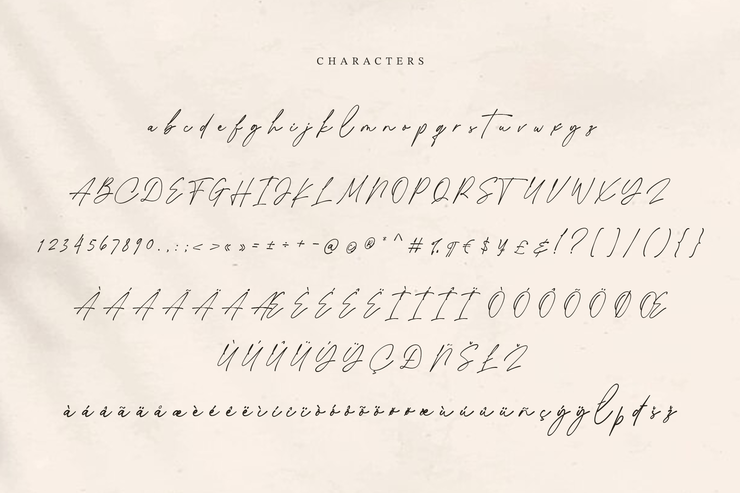 CHARACTERS
a b c d e f g h i j k l m n o p q r s t u v w x y z
A B C D E F G H I J K L M N O P Q R S T U V W X Y Z
1 2 3 4 5 6 7 8 9 0 . , : ; < > « » = ± ÷ + - @ © ® " ^ # % ¶ € $ ¥ £ & ! ? ( ) / ( ) { }
À Á Â Ã Ä Å Æ È É Ê Ë Ì Í Î Ï Ò Ó Ô Õ Ö Ø Œ
Ù Ú Û Ü Ý Ÿ Ç Ð Ñ Š Ł Ž
à á â ã ä å æ è é ê ë ì í î ï ò ó ô õ ö ø œ ù ú û ü ñ ç ý ÿ ł þ đ š ž